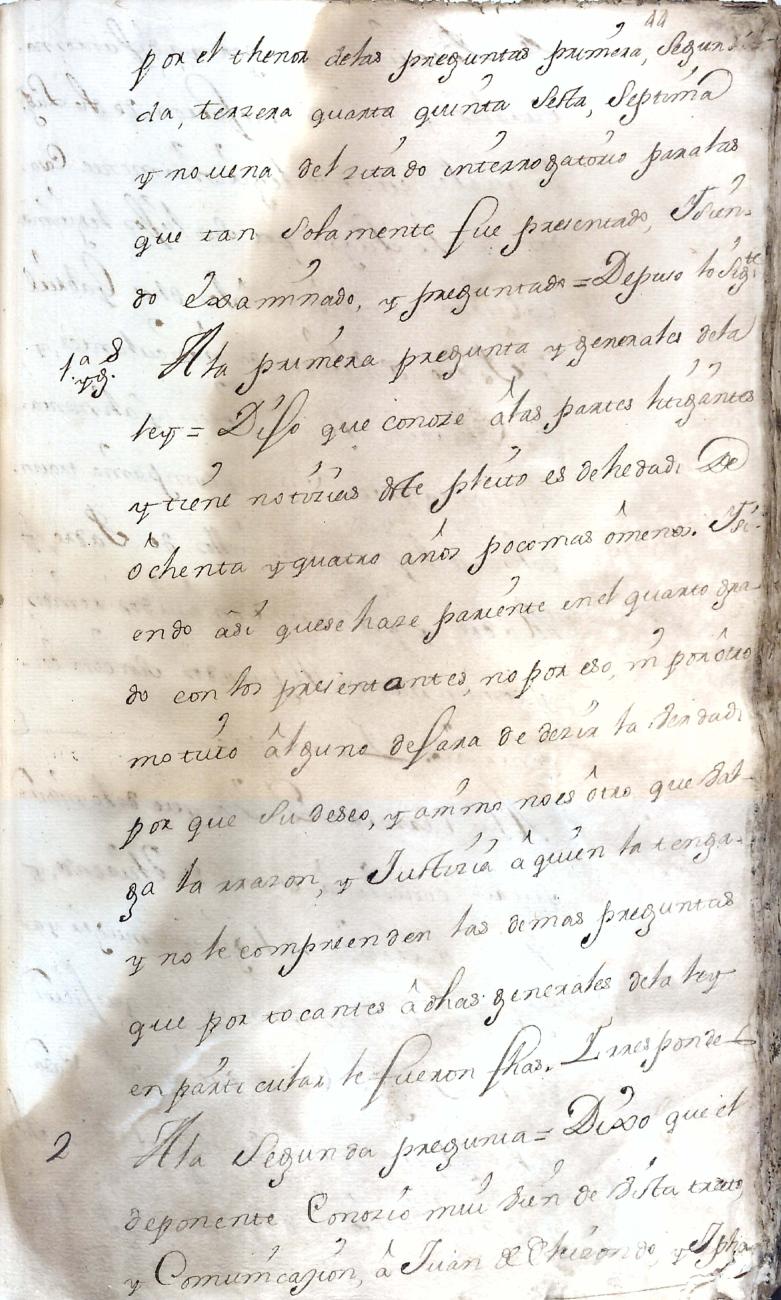 44
por el thenor delas preguntas primera, Segun-
da, terzera quarta quinta Sesta, Septima
y novena del zitado interrogatorio paralas
que tan Solamente fue presentado, Isien-
do examinado, y preguntado = Depuso lo Sigte
1.a y g.s Ala primera pregunta y generales dela
ley = Dijo que conoze âlas partes litigantes
y tiene notizias deste pleito es dehedad De
ochenta y quatro años pocomas ômenos. Isi-
endo âsi quese haze pariente en el quarto gra-
do con los presentantes, no por eso, ni por ôtro
motivo âlguno dejara de dezir la Verdad
por que su deseo, y animo no es ôtro que Val-
ga la rrazon, y Justizia â quien la tenga.
y no le compreenden las demas preguntas
que por tocantes â dhas generales dela ley
en particular le fueron fhas. I rresponde
2 Ala Segunda pregunta = Dixo que el
deponente Conozio mui bien de Vista trato
y Comunicazion, â Juan de